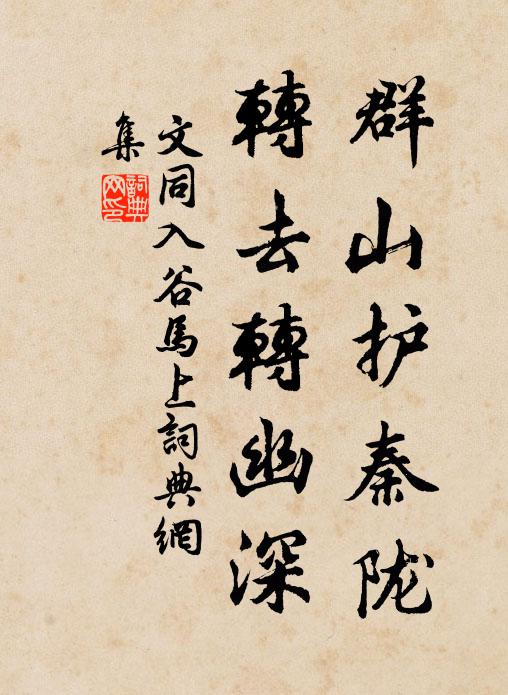 群山护秦陇
轉去轉幽深
文同入谷馬上詞典網
集
詞典网印